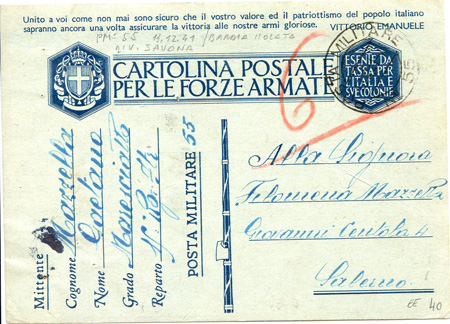 Unito a voi come non mai sono sicuro che il vostro valore ed il patriottismo del popolo italiano
sapranno ancora una volta assicurare la vittoria alle nostre armi gloriose. VITTORIO EMANUELE
PM. 55 11.12.41
DIV. SAVONA
CARTOLINA POSTALE
PER LE FORZE ARMATE
ESENTE DA
TASSA PER
L'ITALIA E
SUE COLONIE
MILITARE
55
6
Mittente
Cognome Mazzetta
Nome Gaetano
Grado Maresciallo
Reparto
POSTA MILITARE 55
Alla Signora
Filomena Mazzetta
Giovanni 4
Salerno
EE 40